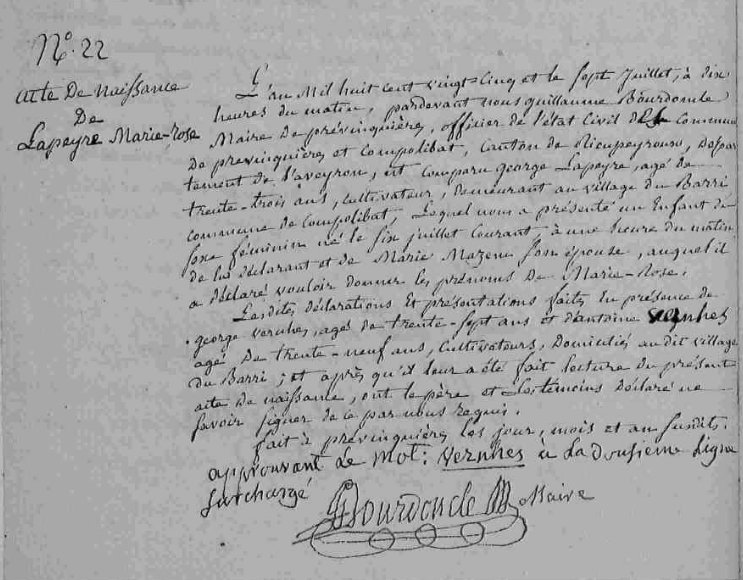 N°. 22
acte De naissance
De
Lapeyre Marie-rose
L'an Mil huit cent vingt-cinq et le sept Juillet, à dix
heures du matin, pardevant nous guillaume Bourdoncle
Maire de prévinquières, officier de l'état Civil de la Commune
de prévinquières et Compolibat, Canton de Rieupeyroux, Dépar
tement de l'aveyron, est comparu george Lapeyre, agé de
trente-trois ans, Cultivateur, demeurant au village du Barri
commune de Compolibat. Lequel nous a présenté un Enfant du
sexe féminin né le six juillet Courant à une heure du matin
de lui déclarant et de Marie Mazenc son épouse, auquel il
a déclaré vouloir donner les prénoms De Marie-Rose.
Lesdites déclarations Et présentations faites En présence de
george vernhes, agés de trente-sept ans et d'antoine vernhes
agé De trente-neuf ans, Cultivateurs, Domiciliés au dit village
du Barri ; et après qu'il leur a été fait lecture du présent
acte de naissance, ont le père et les témoins déclaré ne
savoir signer de ce par nous Requis.
fait à prévinquières les jour, mois et an susdits.
approuvant Le mot : vernhes a La dousieme Ligne
surchargé
Bourdoncle Maire